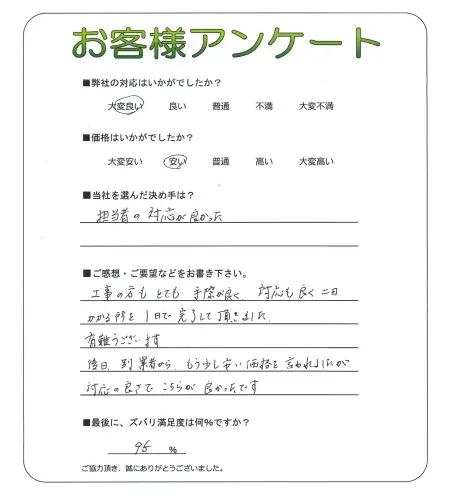 お客様アンケート
■弊社の対応はいかがでしたか？
大変良い 良い 普通 不満 大変不満
■価格はいかがでしたか？
大変安い 安い 普通 高い 大変高い
■当社を選んだ決め手は？
担当者の対応が良かった
■ご感想・ご要望などをお書き下さい。
工事の方もとても手際が良く、対応も良く二日
かかる所を1日で完了して頂きました
有難うございます
後日、別業者から、もう少し安い価格を言われましたが
対応の良さでこちらが良かったです
■最後に、ズバリ満足度は何%ですか？
95 %
ご協力頂き、誠にありがとうございました。